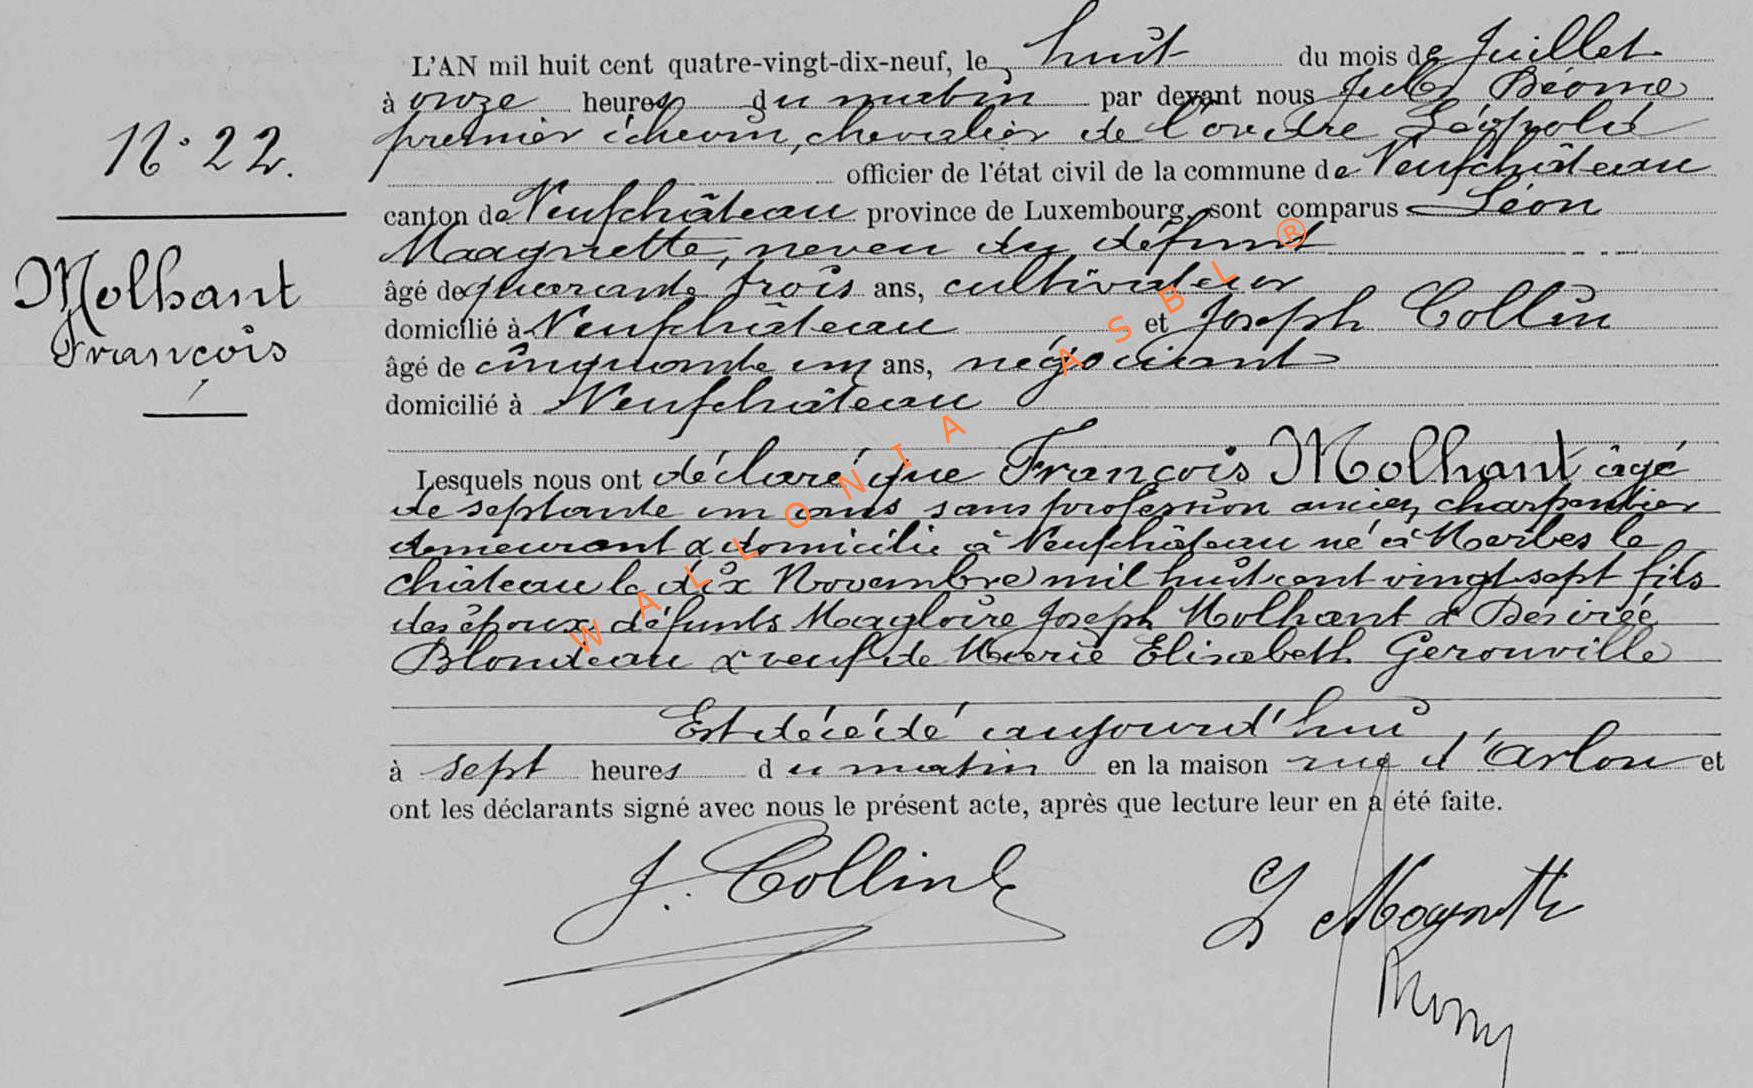 N° 22.
Molhant
François
L'AN mil huit cent quatre-vingt-dix-neuf, le huit du mois de Juillet
à onze heures du matin par devant nous Jules Béome
premier échevin, chevalier de l'ordre Léopold
officier de l'état civil de la commune de Neufchâteau
canton de Neufchâteau province de Luxembourg, sont comparus Léon
Maagnette, neveu du défunt
âgé de quarante trois ans, cultivateur
domicilié à Neufchâteau et Joseph Collin
âgé de cinquante un ans, négociant
domicilié à Neufchâteau
Lesquels nous ont déclaré que François Molhant âgé
de septante un ans sans profession ancien charpentier
demeurant & domicilié à Neufchâteau né à Merbes le
château le dix Novembre mil huit cent vingt sept fils
des époux défunts Magloire Joseph Molhant & Désirée
Blondeau & veuf de Marie Elisabeth Gerouville
Est décédé aujourd'hui
à sept heures du matin en la maison rue d'Arlon et
ont les déclarants signé avec nous le présent acte, après que lecture leur en a été faite.
J. Collin
L Magnette
WALLONIA ASBL ®